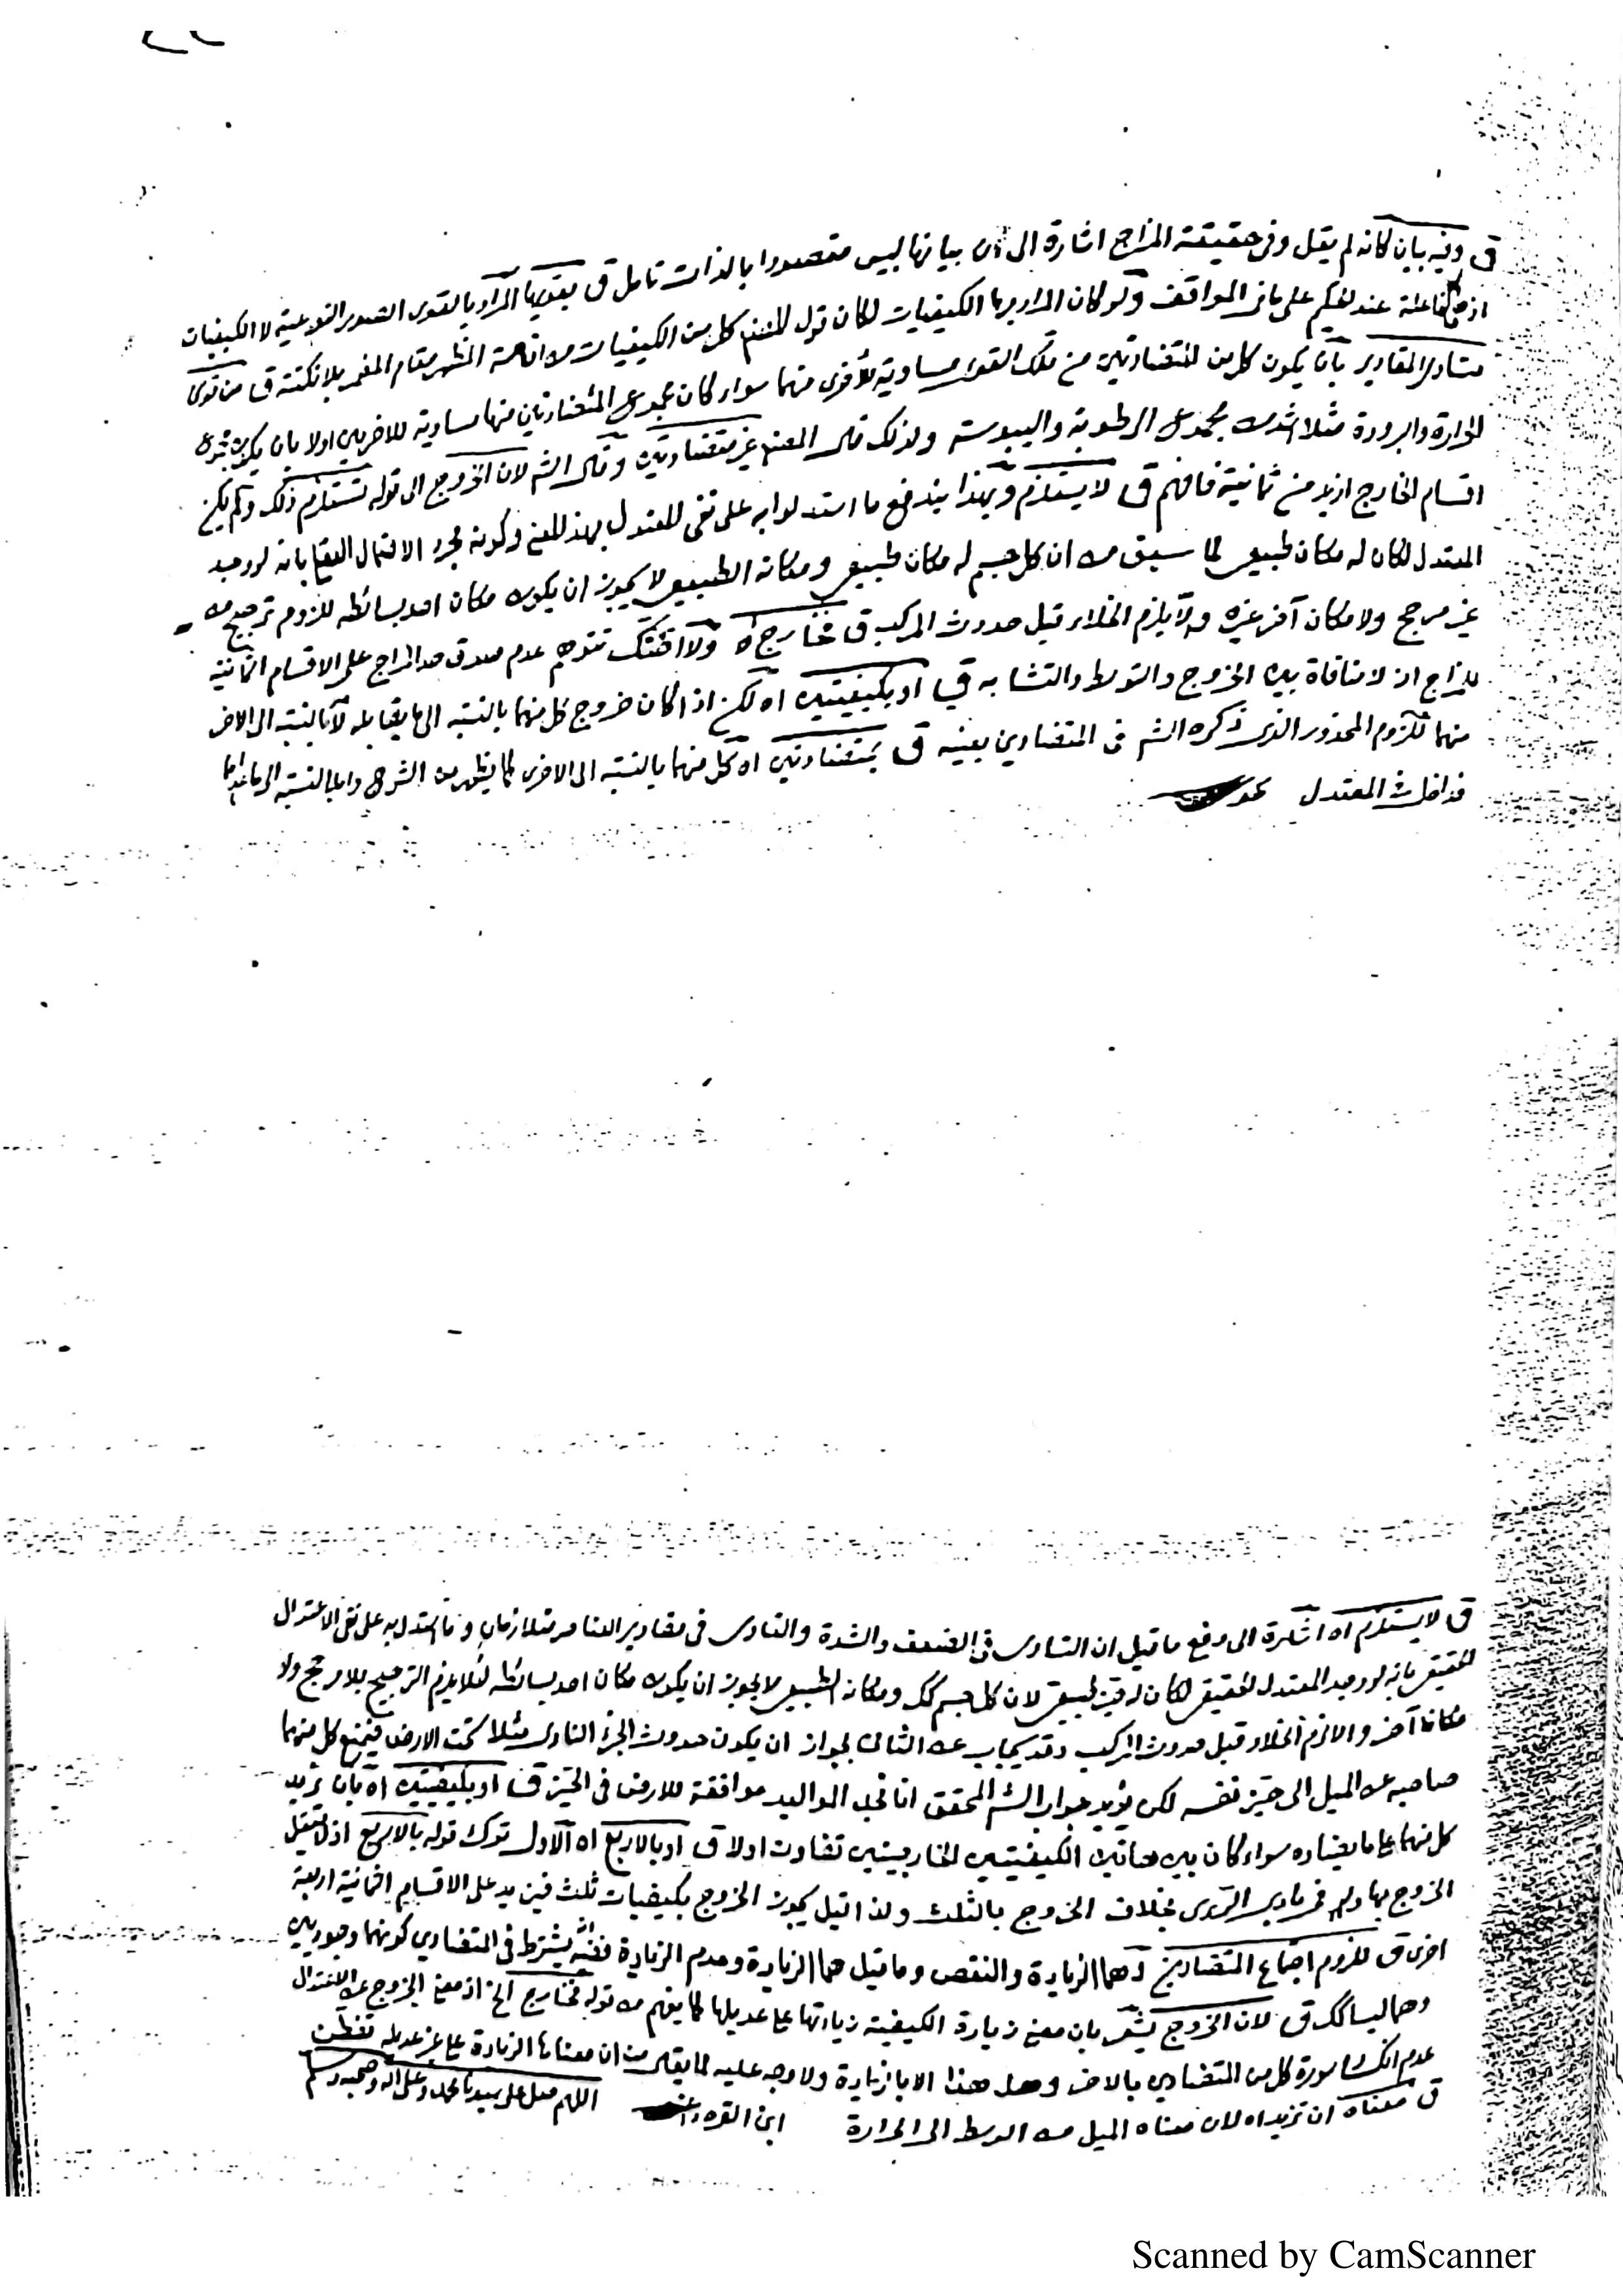 ق وفيه بيان كانه لم يقل وفى حقيقة المزاج اشارة الى ان بيانها ليس مقصودا بالذات تامل ق بقويها المراد بالقوى الصور النوعية لا الكيفيات
اذ الفاعلة عند على ما فى المواقف ولو كان المراد بها الكيفيات لكان قول المصنف كل من الكيفيات من اقامة المظهر مقام المضمر بلا نكتة ق من قوى
متساوى المقادير بان يكون كل من المتضادتين من تلك القوى مساوية للاخرى منهما سواء كان مجموع المتضادتين منها مساوية للاخريين اولا بان يكون قوى
الحرارة والبرودة مثلا اشد من مجموع الرطوبة واليبوسة ولذلك قال المصنف غير متضادتين وقال الشم لان الخروج الى قوله تستلزم ذلك ولم يكن
اقسام الخارج ازيد من ثمانية فافهم ق لا يستلزم وبهذا يندفع ما استدلوا به على نفى المعتدل بهذا المعنى وكونه لمجرد الاحتمال العقلى بانه لو وجد
المعتدل لكان له مكان طبيعى لما سبق من ان كل جسم له مكان طبيعى ومكانه الطبيعى لا يجوز ان يكون مكان احد بسائطه للزوم ترجيح من
غير مرجح ولا مكان آخر غيره والا يلزم الخلاء قبل حدوث المركب ق خارج اه ولا اظنك تتوهم عدم صدق حد المزاج على الاقسام الثمانية
للمزاج اذ لا منافاة بين الخروج والتوسط والتشابه ق او بكيفيتين اه لكن اذا كان خروج كل منهما بالنسبة الى ما يقابله لا بالنسبة الى الاخر
منهما للزوم المحذور الذى ذكره الشم فى المتضادين بعينه ق بمتضادتين اه كل منهما بالنسبة الى الاخرى كما يظهر من الشرح واما بالنسبة الى ما عداهما
فداخل فى المعتدل
ق لا يستلزم اه اشارة الى دفع ما قيل ان التساوى فى الضعف والشدة والتساوى فى مقادير العناصر متلازمان وما استدل به على نفى الاعتدال
الحقيقى بانه لو وجد المعتدل الحقيقى لكان له حيز طبيعى لان كل جسم كك ومكانه الطبيعى لا يجوز ان يكون مكان احد بسائطه لئلا يلزم الترجيح بلا مرجح ولا
مكانا آخر والا لزم الخلاء قبل حدوث المركب وقد يجاب عن الثانى بجواز ان يكون حدوث الجزء النارى مثلا تحت الارض فيمنع كل منهما
صاحبه عن الميل الى حيز نفسه لكن يؤيد جواب الشم المحقق انا نجد المواليد موافقة للارض فى الحيز ق او بكيفيتين اه بان يزيد
كل منهما على ما يضاده سواء كان بين هاتين الكيفيتين الخارجيتين تفاوت اولا ق او بالاربع اه الاول ترك قوله بالاربع اذ لم يقل
الخروج بها ولو فى بادى الرأى بخلاف الخروج بالثلث ولذا قيل يجوز الخروج بكيفيات ثلث فيزيد على الاقسام الثمانية اربعة
اخرى ق للزوم اجتماع المتضادين اه هما الزيادة والنقص وما قيل هما الزيادة وعدم الزيادة ففيه انه يشترط فى المتضادين كونهما وجوديين
وهما ليسا كك ق لان الخروج يشعر بان معنى زيادة الكيفية زيادتها على عديلها كما يفهم من قوله فخارج الخ اذ معنى الخروج عن الاعتدال
عدم انكسار سورة كل من المتضادين بالاخر وهل هذا الا بالزيادة ولا وجه عليه لما يقال من ان معناها الزيادة على غير عديله تفطن
ق معناه ان تزيد اه لان معناه الميل من الوسط الى الحرارة ابن القره داغى اللهم صل على سيدنا محمد وعلى اله وصحبه وسلم
Scanned by CamScanner